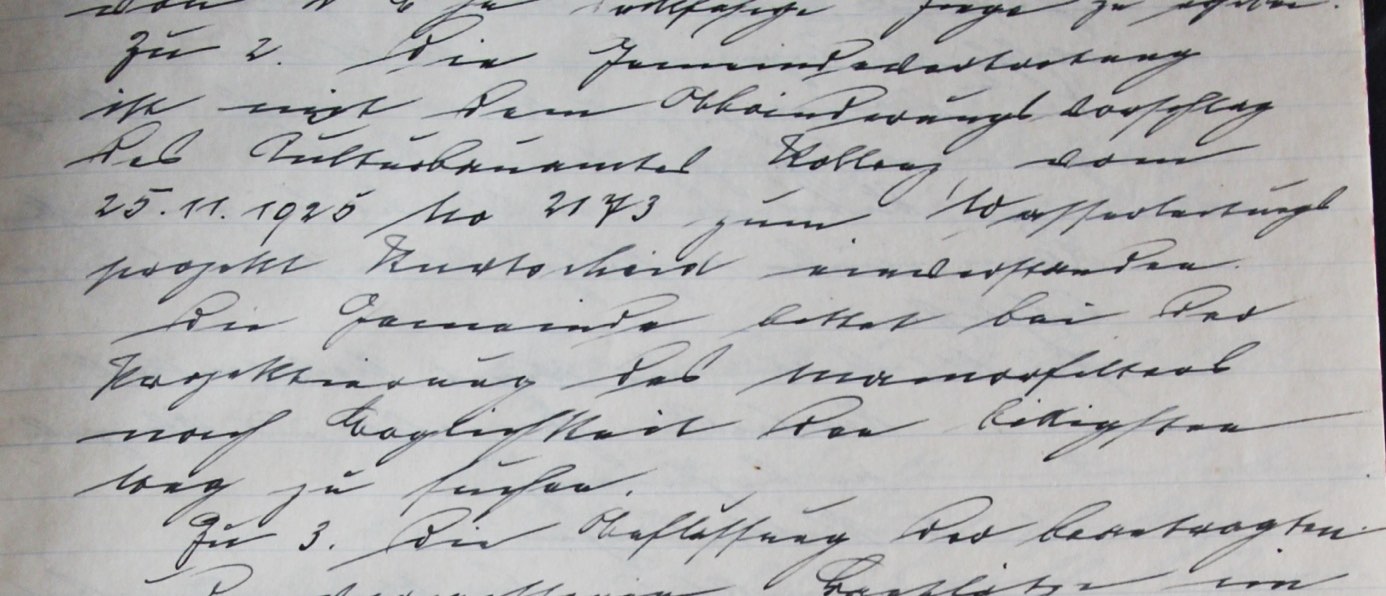 Zu 2. Die Gemeindevertretung
ist mit dem Abänderungsvorschlag
des Kulturbauamtes Koblenz vom
25.11.1925 No 2173 zum Wasserleitungs
projekt Kurtscheid einverstanden.
Die Gemeinde bittet bei der
Projektierung des
nach Möglichkeit den billigsten
Weg zu suchen.
Zu 3. Die der beantragten